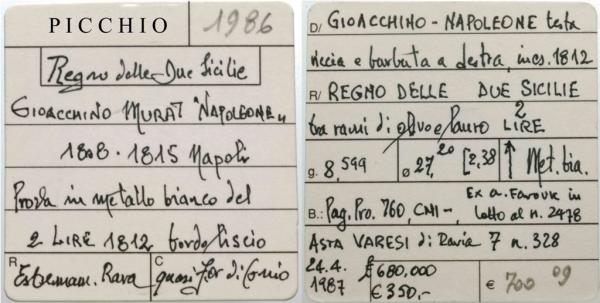 PICCHIO 1986
Regno delle Due Sicilie
GIOACCHINO MURAT "NAPOLEONE"
1808 - 1815 Napoli
Prova in metallo bianco del
2 LIRE 1812 bordo liscio
R Estremam. Rara C quasi Fior di Conio
D/ GIOACCHINO - NAPOLEONE testa
riccia e barbuta a destra, incs. 1812
R/ REGNO DELLE DUE SICILIE
tra rami di olivo e lauro 2 LIRE
g. 8,599 ø 27,20 [2,38 ↑ Met. bia.
B.: Pag. Pro. 760, CNI -, Ex a. Farouk in
lotto al n. 2478
ASTA VARESI di Pavia 7 n. 328
24.4. £ 680,000
1987 € 350,- € 700 09